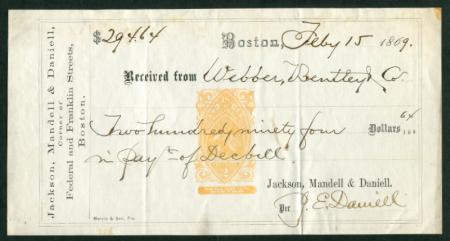 Jackson, Mandell & Daniell,
Corner of
Federal and Franklin Streets,
Boston.
$294.64
Boston, Feby 15 1869.
Received from Webber, Bentley & Co.
Two hundred, ninety four 64
Dollars, 100
in pay't of Dec bill
Jackson, Mandell & Daniell.
Per J. E. Daniell